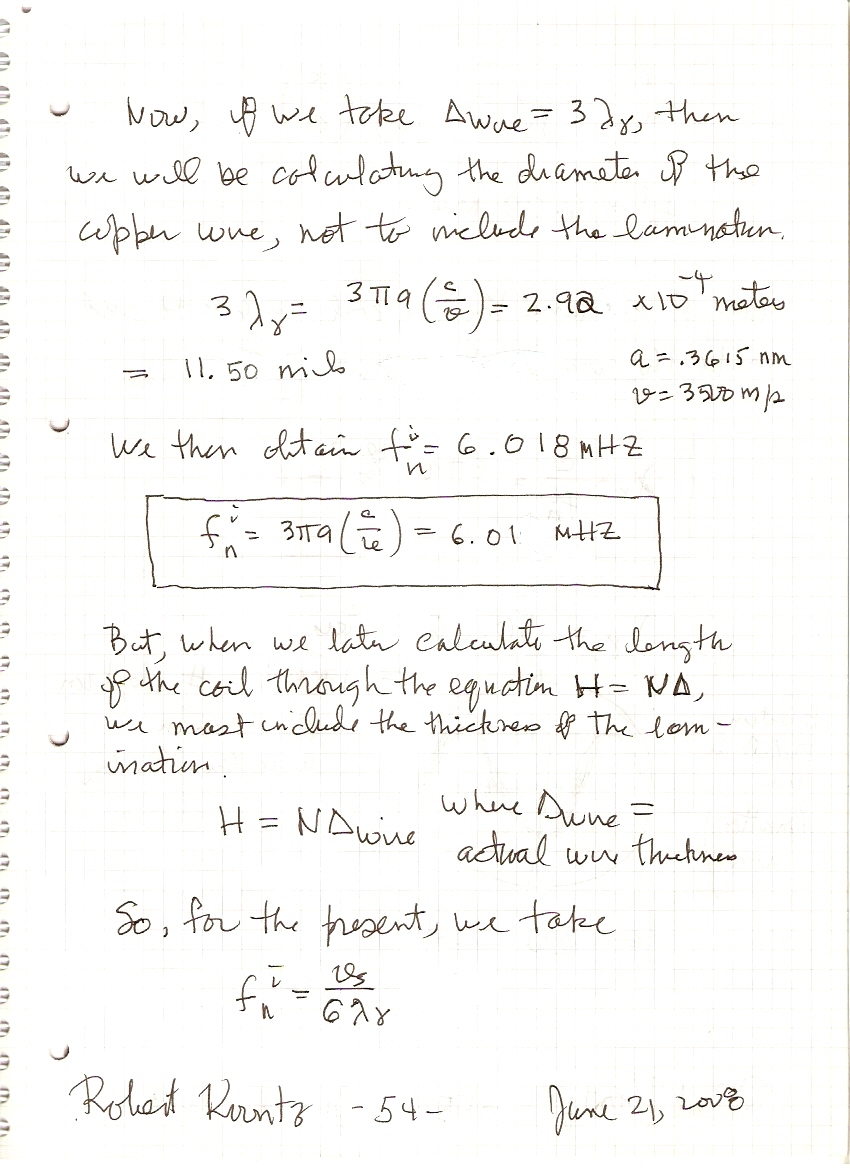 Now, if we take Δwire = 3λγ, then
we will be calculating the diameter of the
copper wire, not to include the lamination.
3λγ = 3πa(c/v) = 2.92 x10⁻⁴ meters
= 11.50 mils
a = .3615 nm
v = 3500 m/s
We then obtain fₙⁱ = 6.018 mHZ
fₙⁱ = 3πa(c/v) = 6.01 MHZ
But, when we later calculate the length
of the coil through the equation H = NΔ,
we must include the thickness of the lam-
ination.
H = NΔwire where Δwire =
actual wire thickness
So, for the present, we take
fₙⁱ = vs/6λγ
Robert Koontz - 54 - June 21, 2008